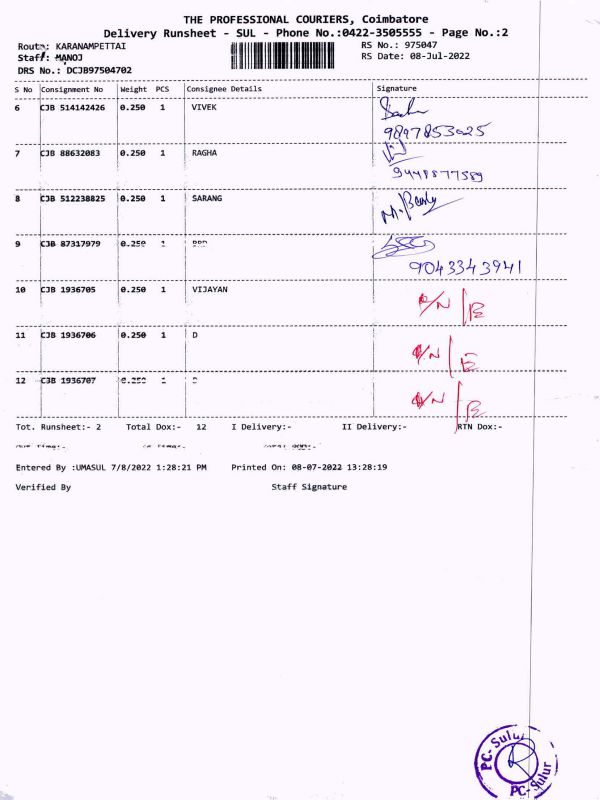 THE PROFESSIONAL COURIERS, Coimbatore
Delivery Runsheet - SUL - Phone No.:0422-3505555 - Page No.:2
Route: KARANAMPETTAI
RS No.: 975047
Staff: MANOJ
RS Date: 08-Jul-2022
DRS No.: DCJB97504702
S No Consignment No Weight PCS Consignee Details Signature
6 CJB 514142426 0.250 1 VIVEK
9897853025
7 CJB 88632083 0.250 1 RAGHA
9448877589
8 CJB 512238825 0.250 1 SARANG
9 CJB 87317979 0.250 1
9043343941
10 CJB 1936705 0.250 1 VIJAYAN
11 CJB 1936706 0.250 1 D
12 CJB 1936707 0.250 1
Tot. Runsheet:- 2 Total Dox:- 12 I Delivery:- II Delivery:- RTN Dox:-
Entered By :UMASUL 7/8/2022 1:28:21 PM Printed On: 08-07-2022 13:28:19
Verified By Staff Signature
PC-Sulur
PC-Sulur